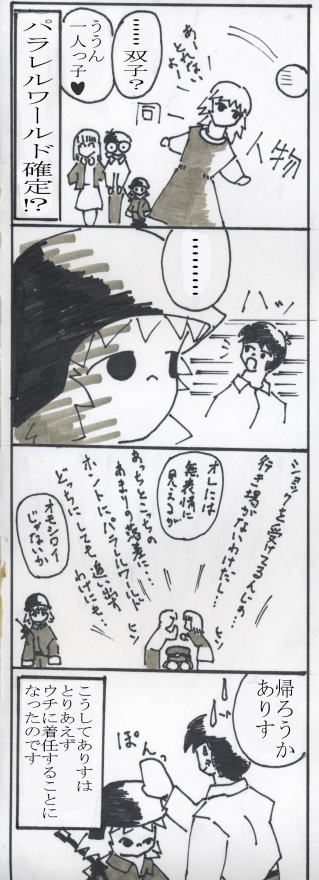 あ〜
とんない
よ〜
……双子?
ううん
一人っ子♥
同一
人物
パラレルワールド確定!?
…………
ハッ
ショックを受けてるんじゃ…
行き場がないわけだし…
オレには
無表情に
見えるが
あっちとこっちの
あまりの落差に…
ホントにパラレルワールド
どっちにしても追い出す
わけにも…
ヒソ
ヒソ
オモシロイ
じゃないか
帰ろうか
ありす
ぽんっ
こうしてありすは
とりあえず
ウチに着任することに
なったのです